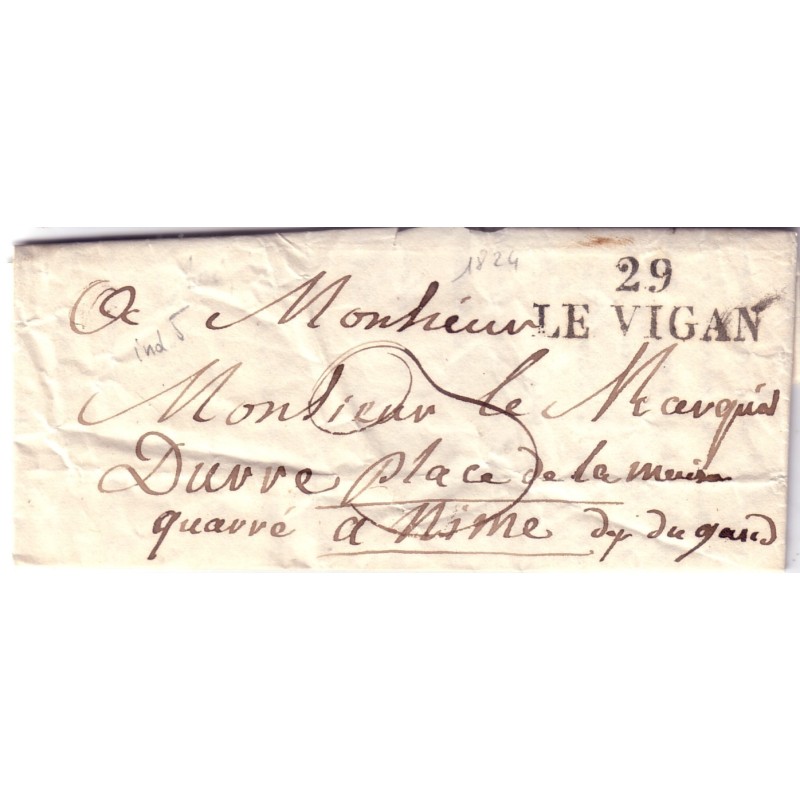 1824
29
LE VIGAN
ind 5
A Monsieur
Monsieur le Marquis
Durre place de la meison
quarré a Nîme dp du gard